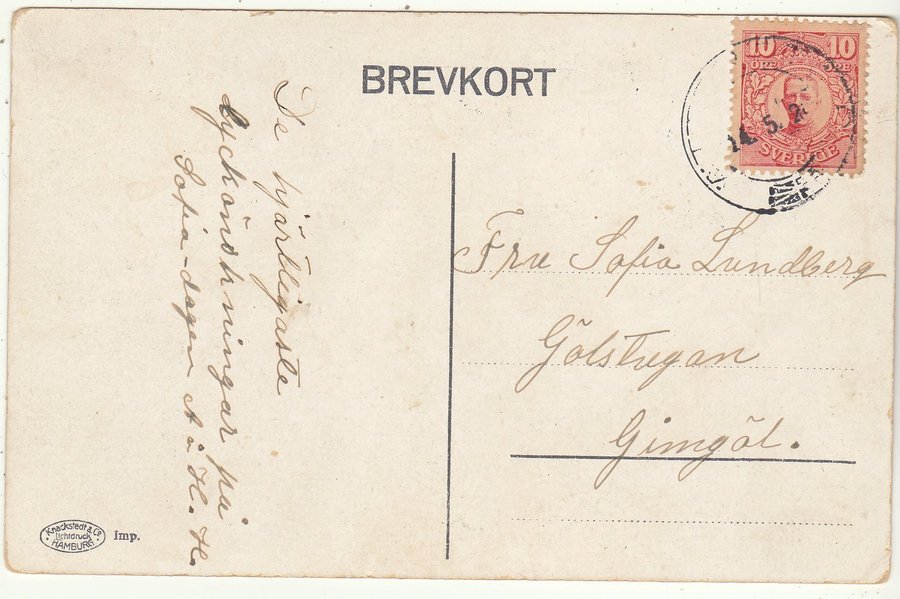 BREVKORT
10 10
ÖRE ÖRE
SVERIGE
14. 5. 2
De hjärtligaste
lyckönskningar på
Sofia-dagen A å H. H.
Fru Sofia Lundberg
Gölstugan
Gimgöl.
Knackstedt & Co
Lichtdruck
HAMBURG
Imp.